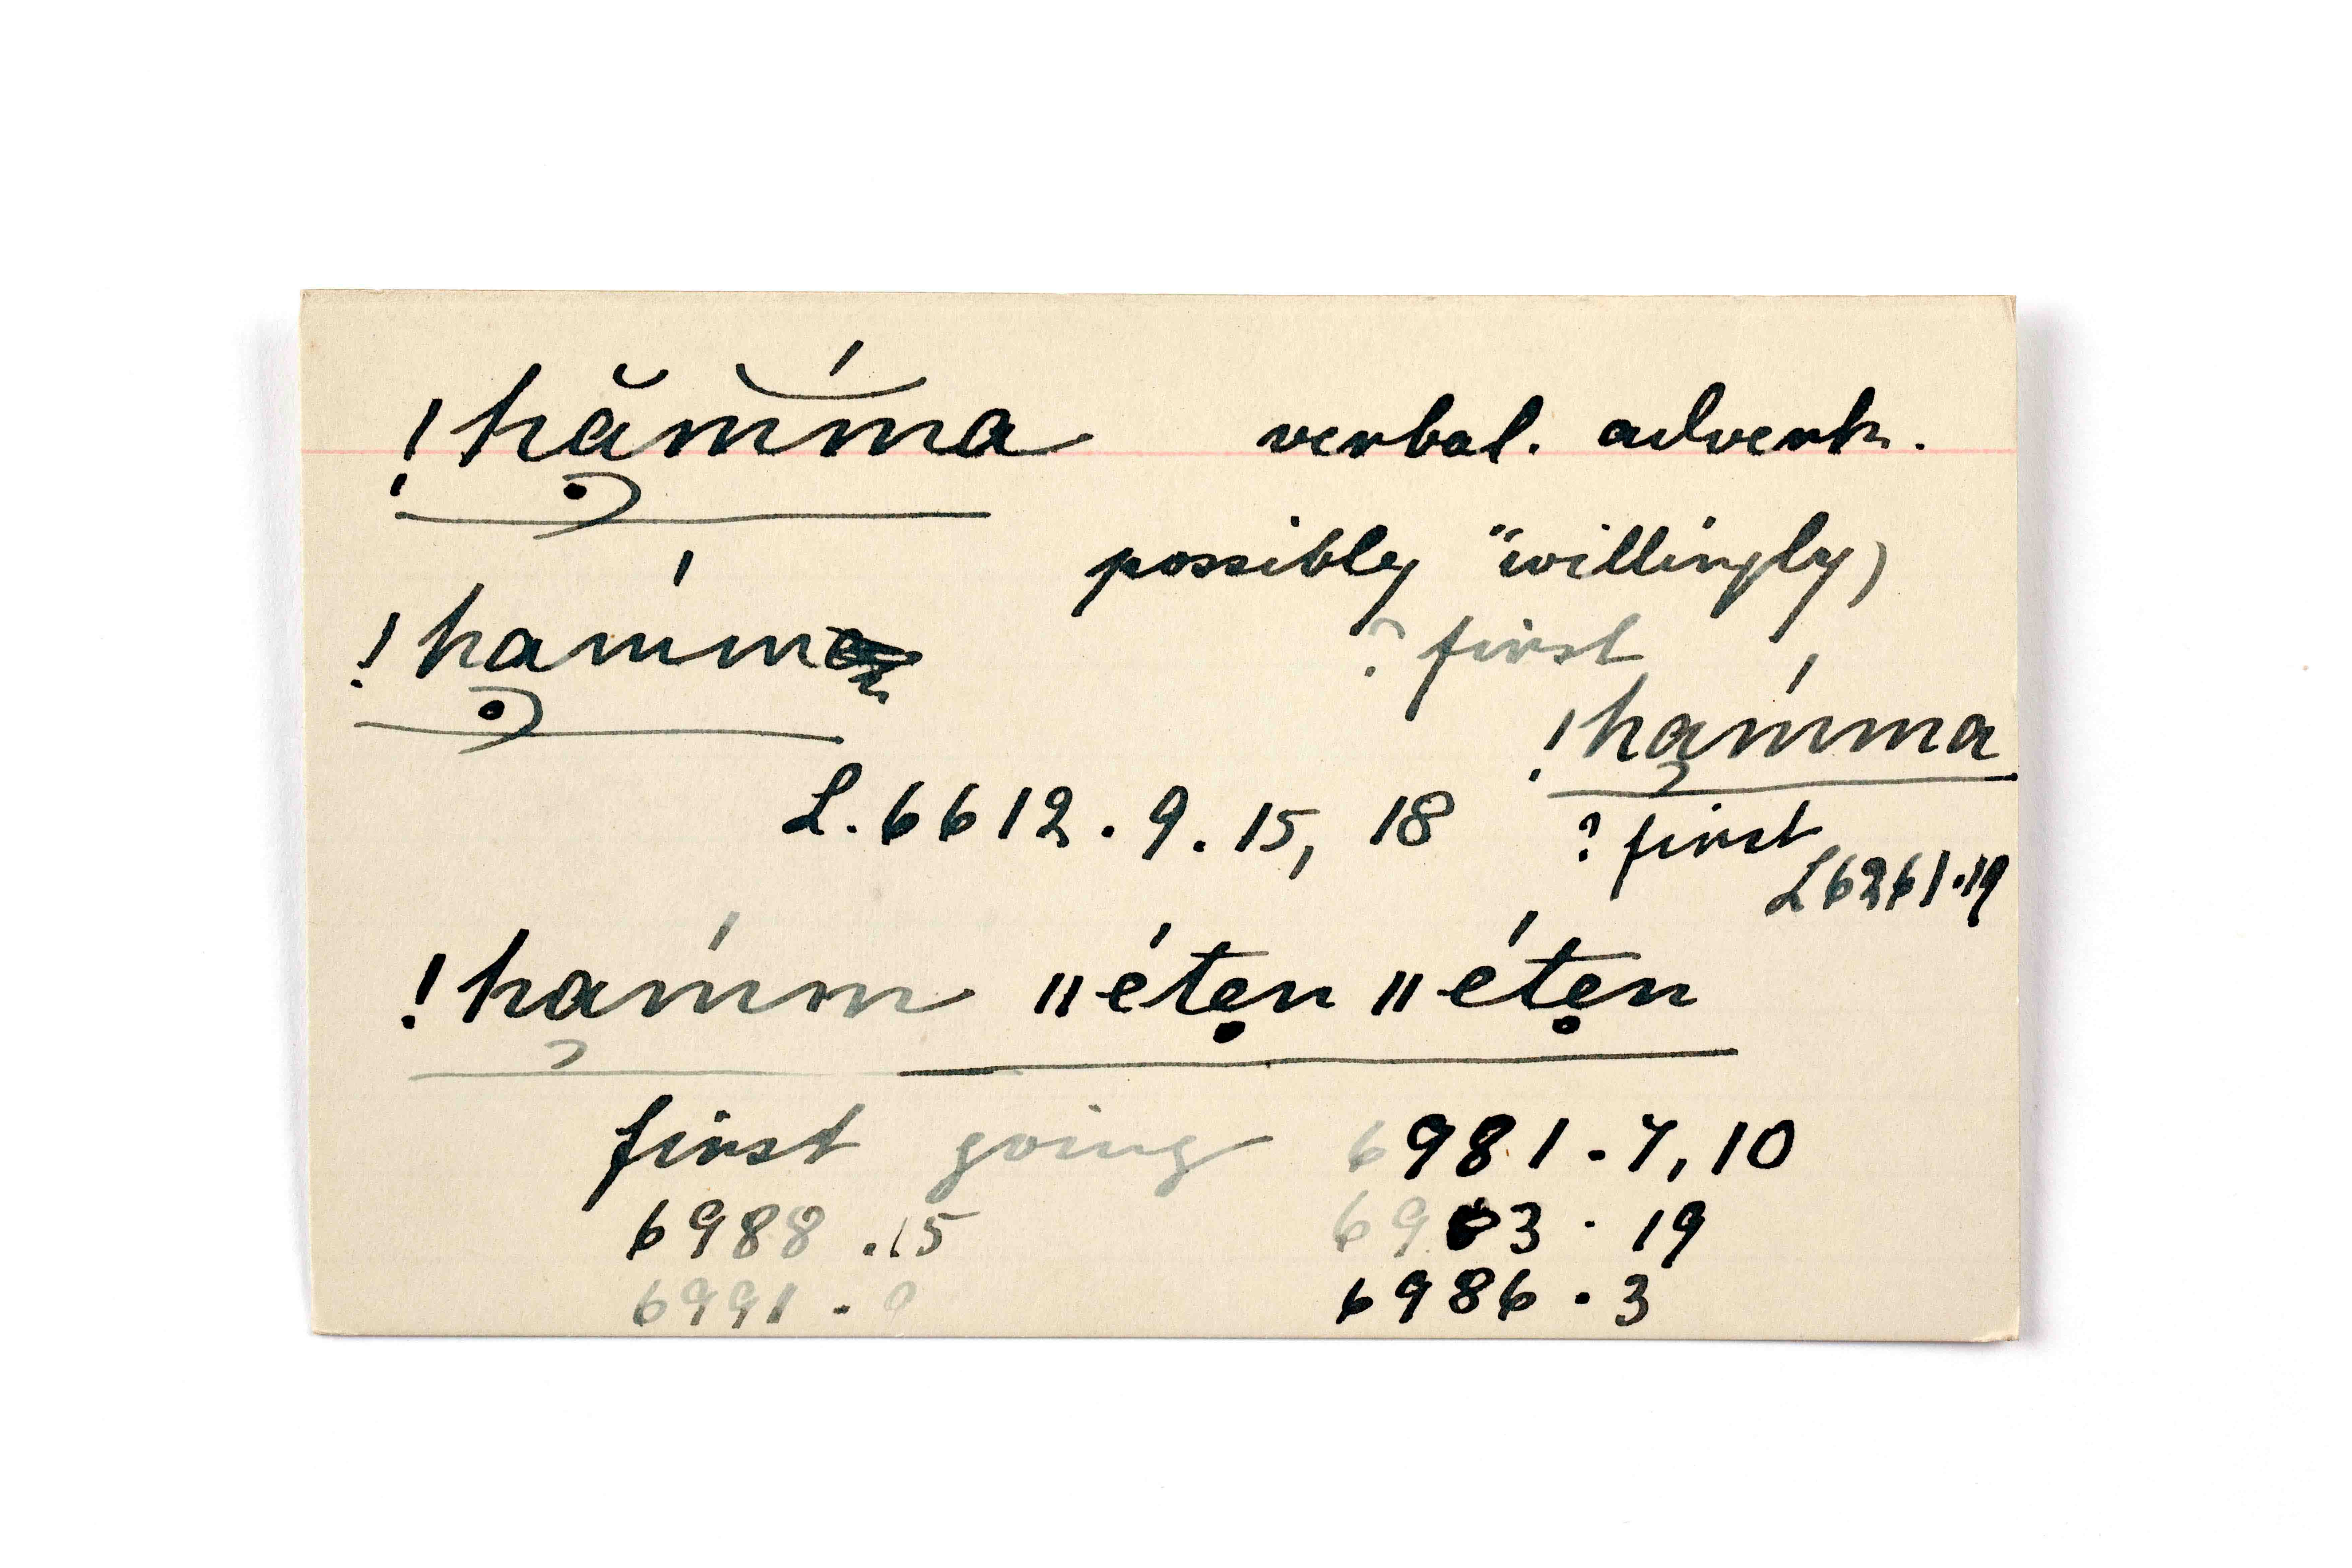 !hă̱m͝ḿa verbal. adverb.
possibly "willingly)
!ha̱mḿ
? first
!ha̱ḿma
L. 6612. 9. 15, 18
? first
L6261.19
!ha̱ḿm ||étẹn ||étẹn
first going 6981.7,10
6988.15 6983.19
6991.9 6986.3